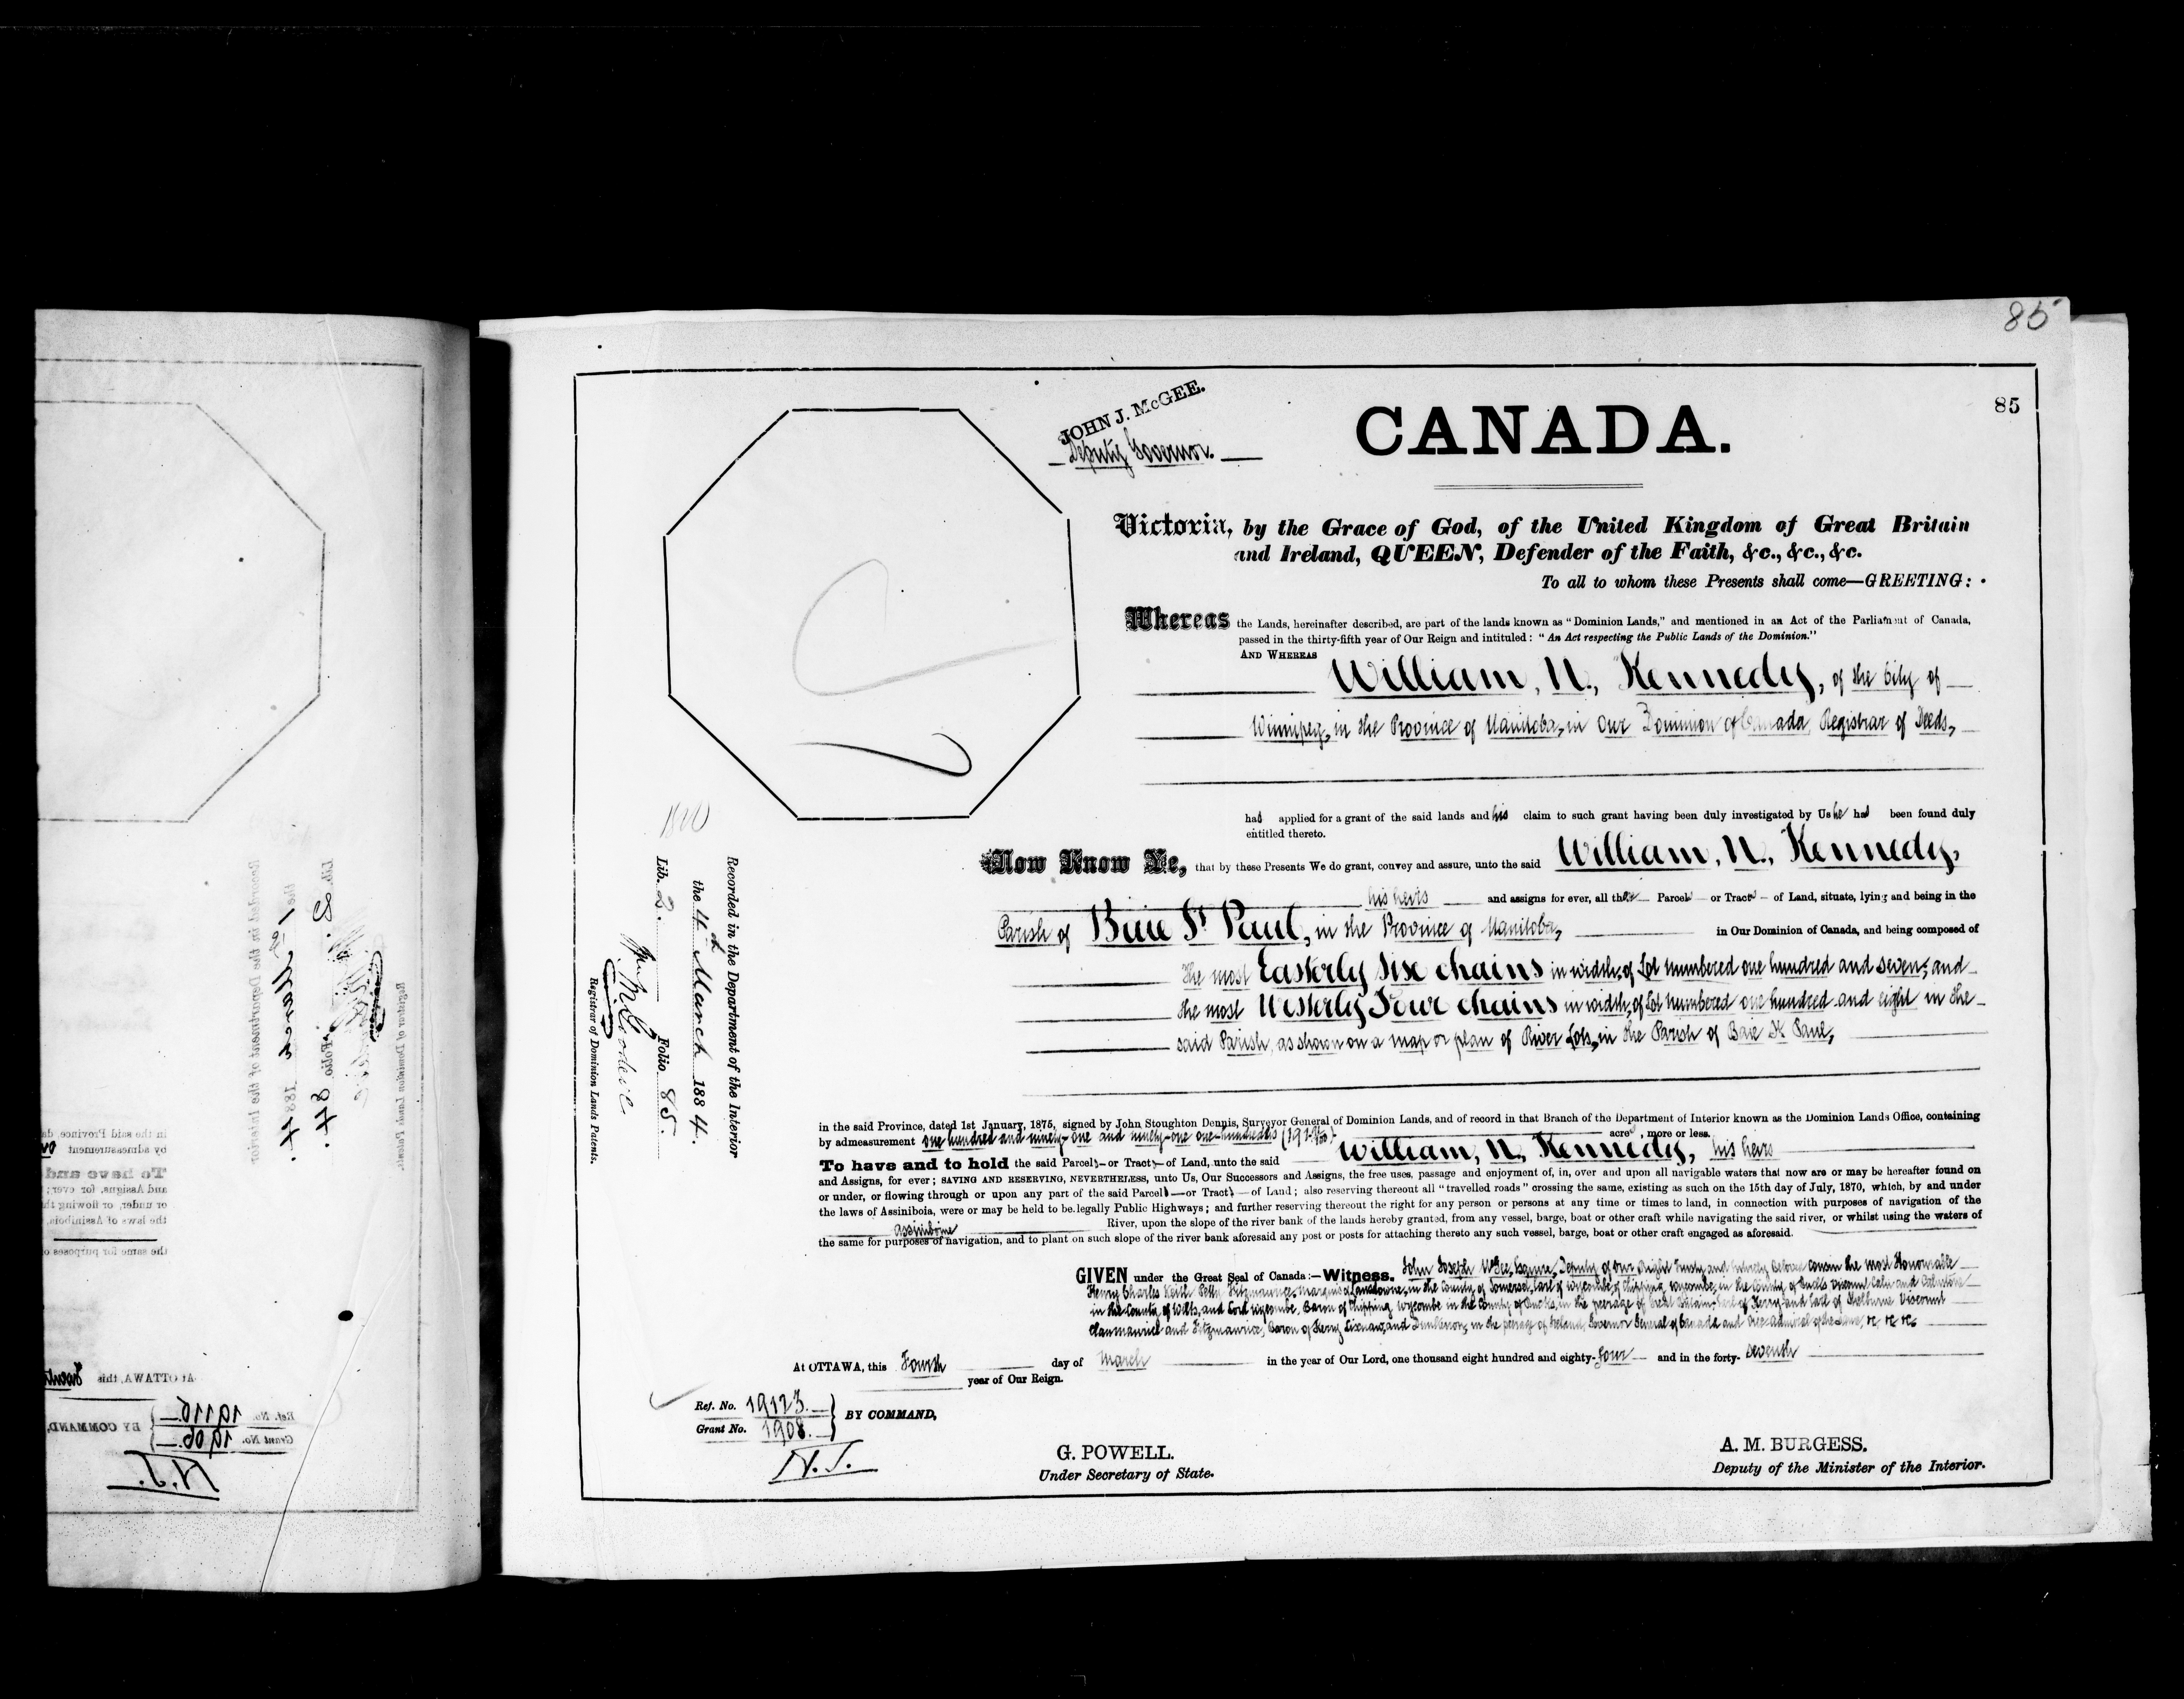 85
85
JOHN J. McGEE.
Deputy Governor.
CANADA.
Victoria, by the Grace of God, of the United Kingdom of Great Britain
and Ireland, QUEEN, Defender of the Faith, &c., &c., &c.
To all to whom these Presents shall come—GREETING:
Whereas the Lands, hereinafter described, are part of the lands known as "Dominion Lands," and mentioned in an Act of the Parliament of Canada,
passed in the thirty-fifth year of Our Reign and intituled: "An Act respecting the Public Lands of the Dominion."
AND WHEREAS William, N., Kennedy, of the City of
Winnipeg, in the Province of Manitoba, in Our Dominion of Canada, Registrar of Deeds,
had applied for a grant of the said lands and his claim to such grant having been duly investigated by Us he had been found duly
entitled thereto.
Now Know Ye, that by these Presents We do grant, convey and assure, unto the said William, N., Kennedy,
his heirs and assigns for ever, all those Parcels or Tracts of Land, situate, lying and being in the
Parish of Baie St Paul, in the Province of Manitoba, in Our Dominion of Canada, and being composed of
the most Easterly Six chains in width, of Lot numbered one hundred and seven, and
the most Westerly Four chains in width, of Lot numbered one hundred and eight in the
said Parish, as shown on a map or plan of River Lots, in the Parish of Baie St Paul,
in the said Province, dated 1st January, 1875, signed by John Stoughton Dennis, Surveyor General of Dominion Lands, and of record in that Branch of the Department of Interior known as the Dominion Lands Office, containing
by admeasurement one hundred and ninety-one and ninety-one one-hundredths (191 91/100) acres, more or less.
To have and to hold the said Parcels or Tracts of Land, unto the said William, N., Kennedy, his heirs
and Assigns, for ever; SAVING AND RESERVING, NEVERTHELESS, unto Us, Our Successors and Assigns, the free uses, passage and enjoyment of, in, over and upon all navigable waters that now are or may be hereafter found on
or under, or flowing through or upon any part of the said Parcels or Tracts of Land; also reserving thereout all "travelled roads" crossing the same, existing as such on the 15th day of July, 1870, which, by and under
the laws of Assiniboia, were or may be held to be legally Public Highways; and further reserving thereout the right for any person or persons at any time or times to land, in connection with purposes of navigation of the
Assiniboine River, upon the slope of the river bank of the lands hereby granted, from any vessel, barge, boat or other craft while navigating the said river, or whilst using the waters of
the same for purposes of navigation, and to plant on such slope of the river bank aforesaid any post or posts for attaching thereto any such vessel, barge, boat or other craft engaged as aforesaid.
GIVEN under the Great Seal of Canada:—Witness. John Joseph McGee, Esquire, Deputy of Our Right Trusty and Entirely Beloved Cousin the most Honourable
Henry Charles Keith Petty Fitzmaurice, Marquis of Lansdowne, in the County of Somerset, Earl of Wycombe, of Chipping Wycombe, in the County of Bucks, Viscount Caln and Calnstone
in the County of Wilts, and Lord Wycombe, Baron of Chipping Wycombe in the County of Bucks, in the peerage of Great Britain, Earl of Kerry and Earl of Shelburne Viscount
Clanmaurice and Fitzmaurice, Baron of Kerry Lixnaw, and Dunkerron, in the peerage of Ireland, Governor General of Canada and Vice Admiral of the same, &c &c &c
At OTTAWA, this Fourth day of March in the year of Our Lord, one thousand eight hundred and eighty-four and in the forty-seventh
year of Our Reign.
Ref. No. 19123.
Grant No. 1908.
BY COMMAND,
N.J.
G. POWELL.
Under Secretary of State.
A. M. BURGESS.
Deputy of the Minister of the Interior.
Recorded in the Department of the Interior
the 4th March 1884.
Lib. 2. Folio 85.
Registrar of Dominion Lands Patents.